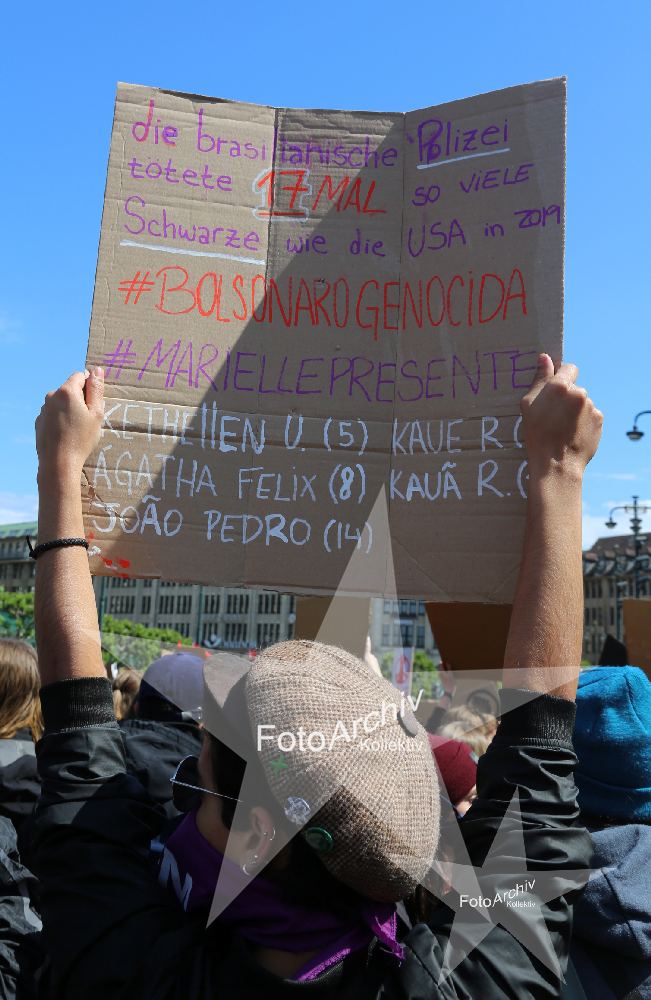 die brasilianische Polizei
tötete 17 MAL so VIELE
Schwarze wie die USA in 2019
#BOLSONAROGENOCIDA
#MARIELLEPRESENTE
KETHELLEN U. (5) KAUE R. (
ÁGATHA FELIX (8) KAUÃ R. (
JOÃO PEDRO (14)
FotoArchiv
Kollektiv
M
FotoArchiv
Kollektiv